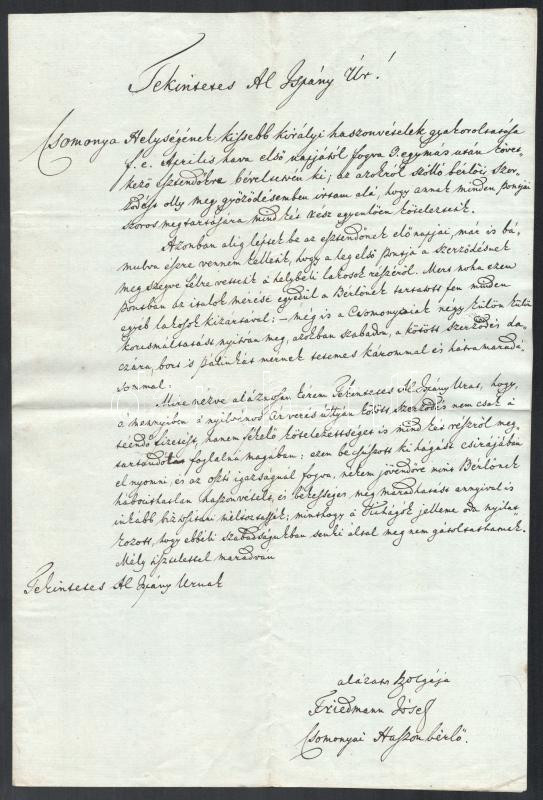 Tekintetes Al Ispány Úr!
Csomonya Helységének kissebb királyi haszonvételek gyakoroltatása
f. e. Aprilis hava első napjától fogva 3 egymás után követ-
kező esztendőkre béreltetvén ki; az azokról szólló bérlői Szer-
ződést olly meg győződésemben irtam alá, hogy annak minden pontjai
szoros megtartására mind két rész egyenlően köteleztetik.
Azonban alig léptek be az esztendőnek elő napjai, már is bá-
mulva észre vennem kelletik, hogy a leg első pontja a Szerződésnek
meg szegve félre vettetik a helybéli lakosok részéről. Mert noha ezen
pontban az italok mérése egyedül a Bérlőnek tartatott fen minden
egyéb lakosok kizártával: – még is a Csomonyaiak négy külön külön
korcsmáltatást nyitván meg, azokban szabadon, a kötött Szerződés da-
czára, bort s pálinkát mérnek tetemes kárommal és hátramaradá-
sommal.
Mire nézve alázatosan kérem Tekintetes Al Ispány Urat, hogy,
a mennyiben a nyilvános árverés úttyán kötött szerződés nem csak a
teendő fizetést, hanem sikeló kötelezettséget is mind két részről meg
tartandót foglalna magában; ezen becsúszott ki hágást csirájában
el nyomni, és az osztó igazságnál fogva, nekem jövendőre mint Bérlőnek
háboríthatlan haszonvételt, és békességes meg maradhatást annyival is
inkább bizosítani méltóztassék; minthogy a kihágók jelleme oda nyilat-
kozott, hogy ebbeli szabadságukban senki által meg nem gátoltathatnak.
Mély tisztelettel maradván
Tekintetes Al Ispány Urnak
alázatos szolgája
Friedmann Jósef
Csomonyai Haszonbérlő.